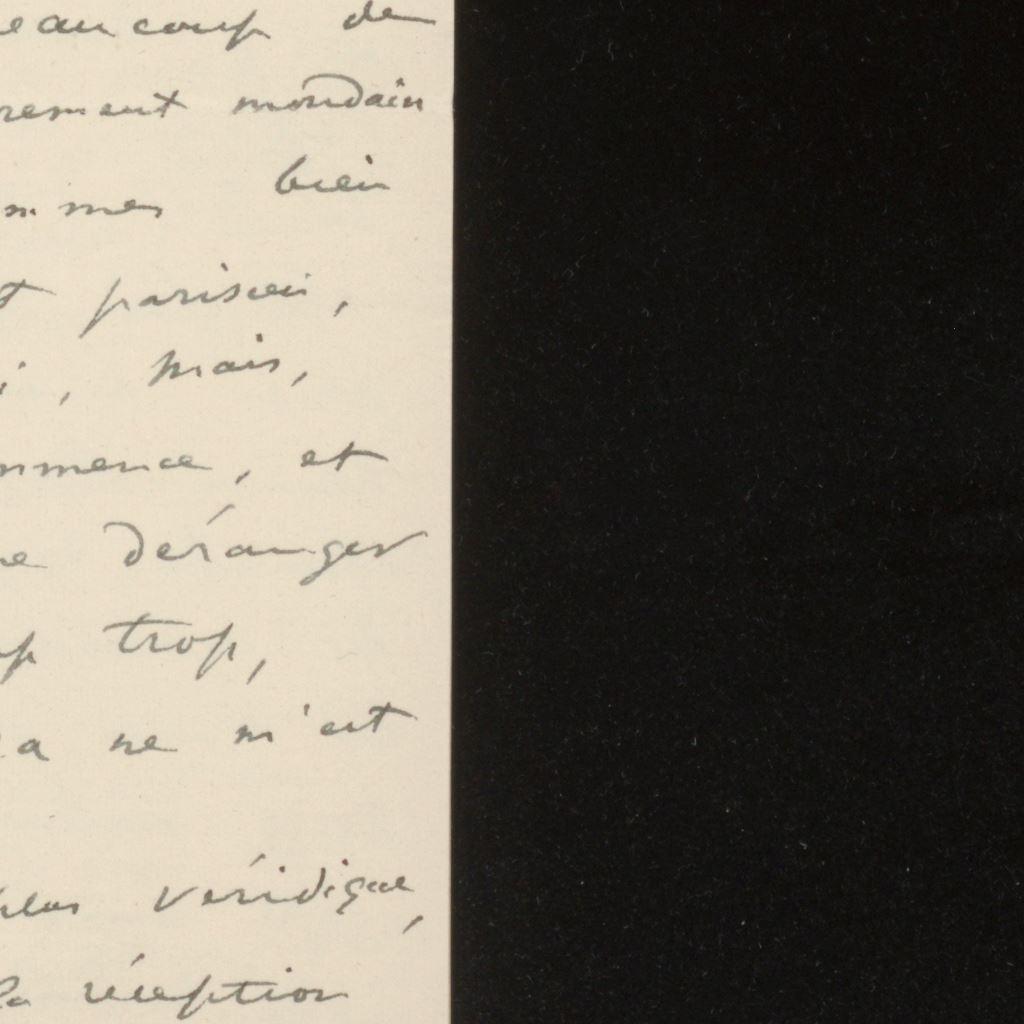 eaucoup de
rement mondain
mmes bien
t parisien,
i, mais,
mmence, et
e déranger
p trop,
a ne m'est
plus véridique,
la réception